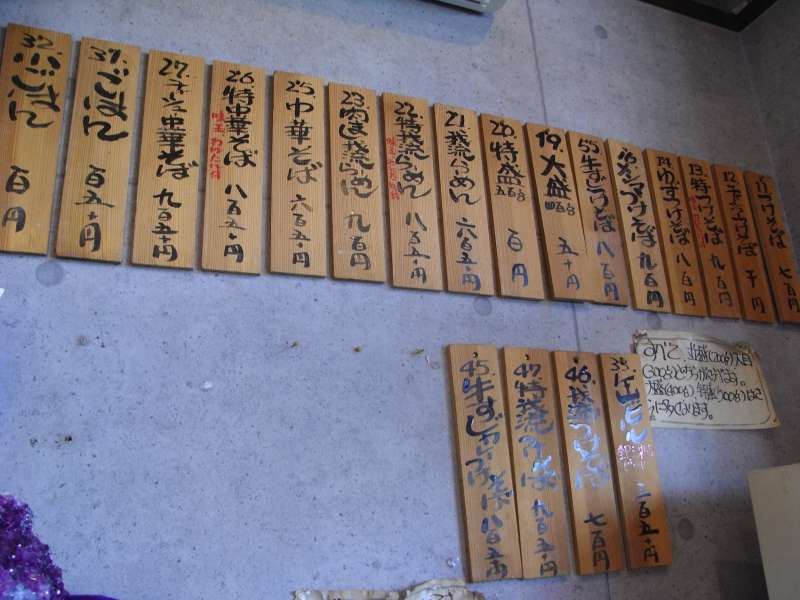 11.つけそば 七百円
12.チャーシューつけそば 千円
13.特つけそば 九百円
14.ゆずつけそば 八百円
つけそば 九百円
55.牛すじつけそば 八百円
19.大盛 四百g 五十円
20.特盛 五百g 百円
21.我流らーめん 六百五十円
22.特我流らーめん 八百五十円
23.肉迄我流らーめん 九百円
25.中華そば 六百五十円
26.特中華そば 味玉 八百五十円
27.チャーシュー中華そば 九百五十円
31.ごはん 百五十円
32.小ごはん 百円
すべて、並盛(200g)大目
(300g)どちらか
大盛(400g)、特盛(500g)は
なります。
ビール 二百五十円
46.我流つけそば 七百円
47.特我流つけそば 九百五十円
45.牛すじカレーつけそば 八百五十円